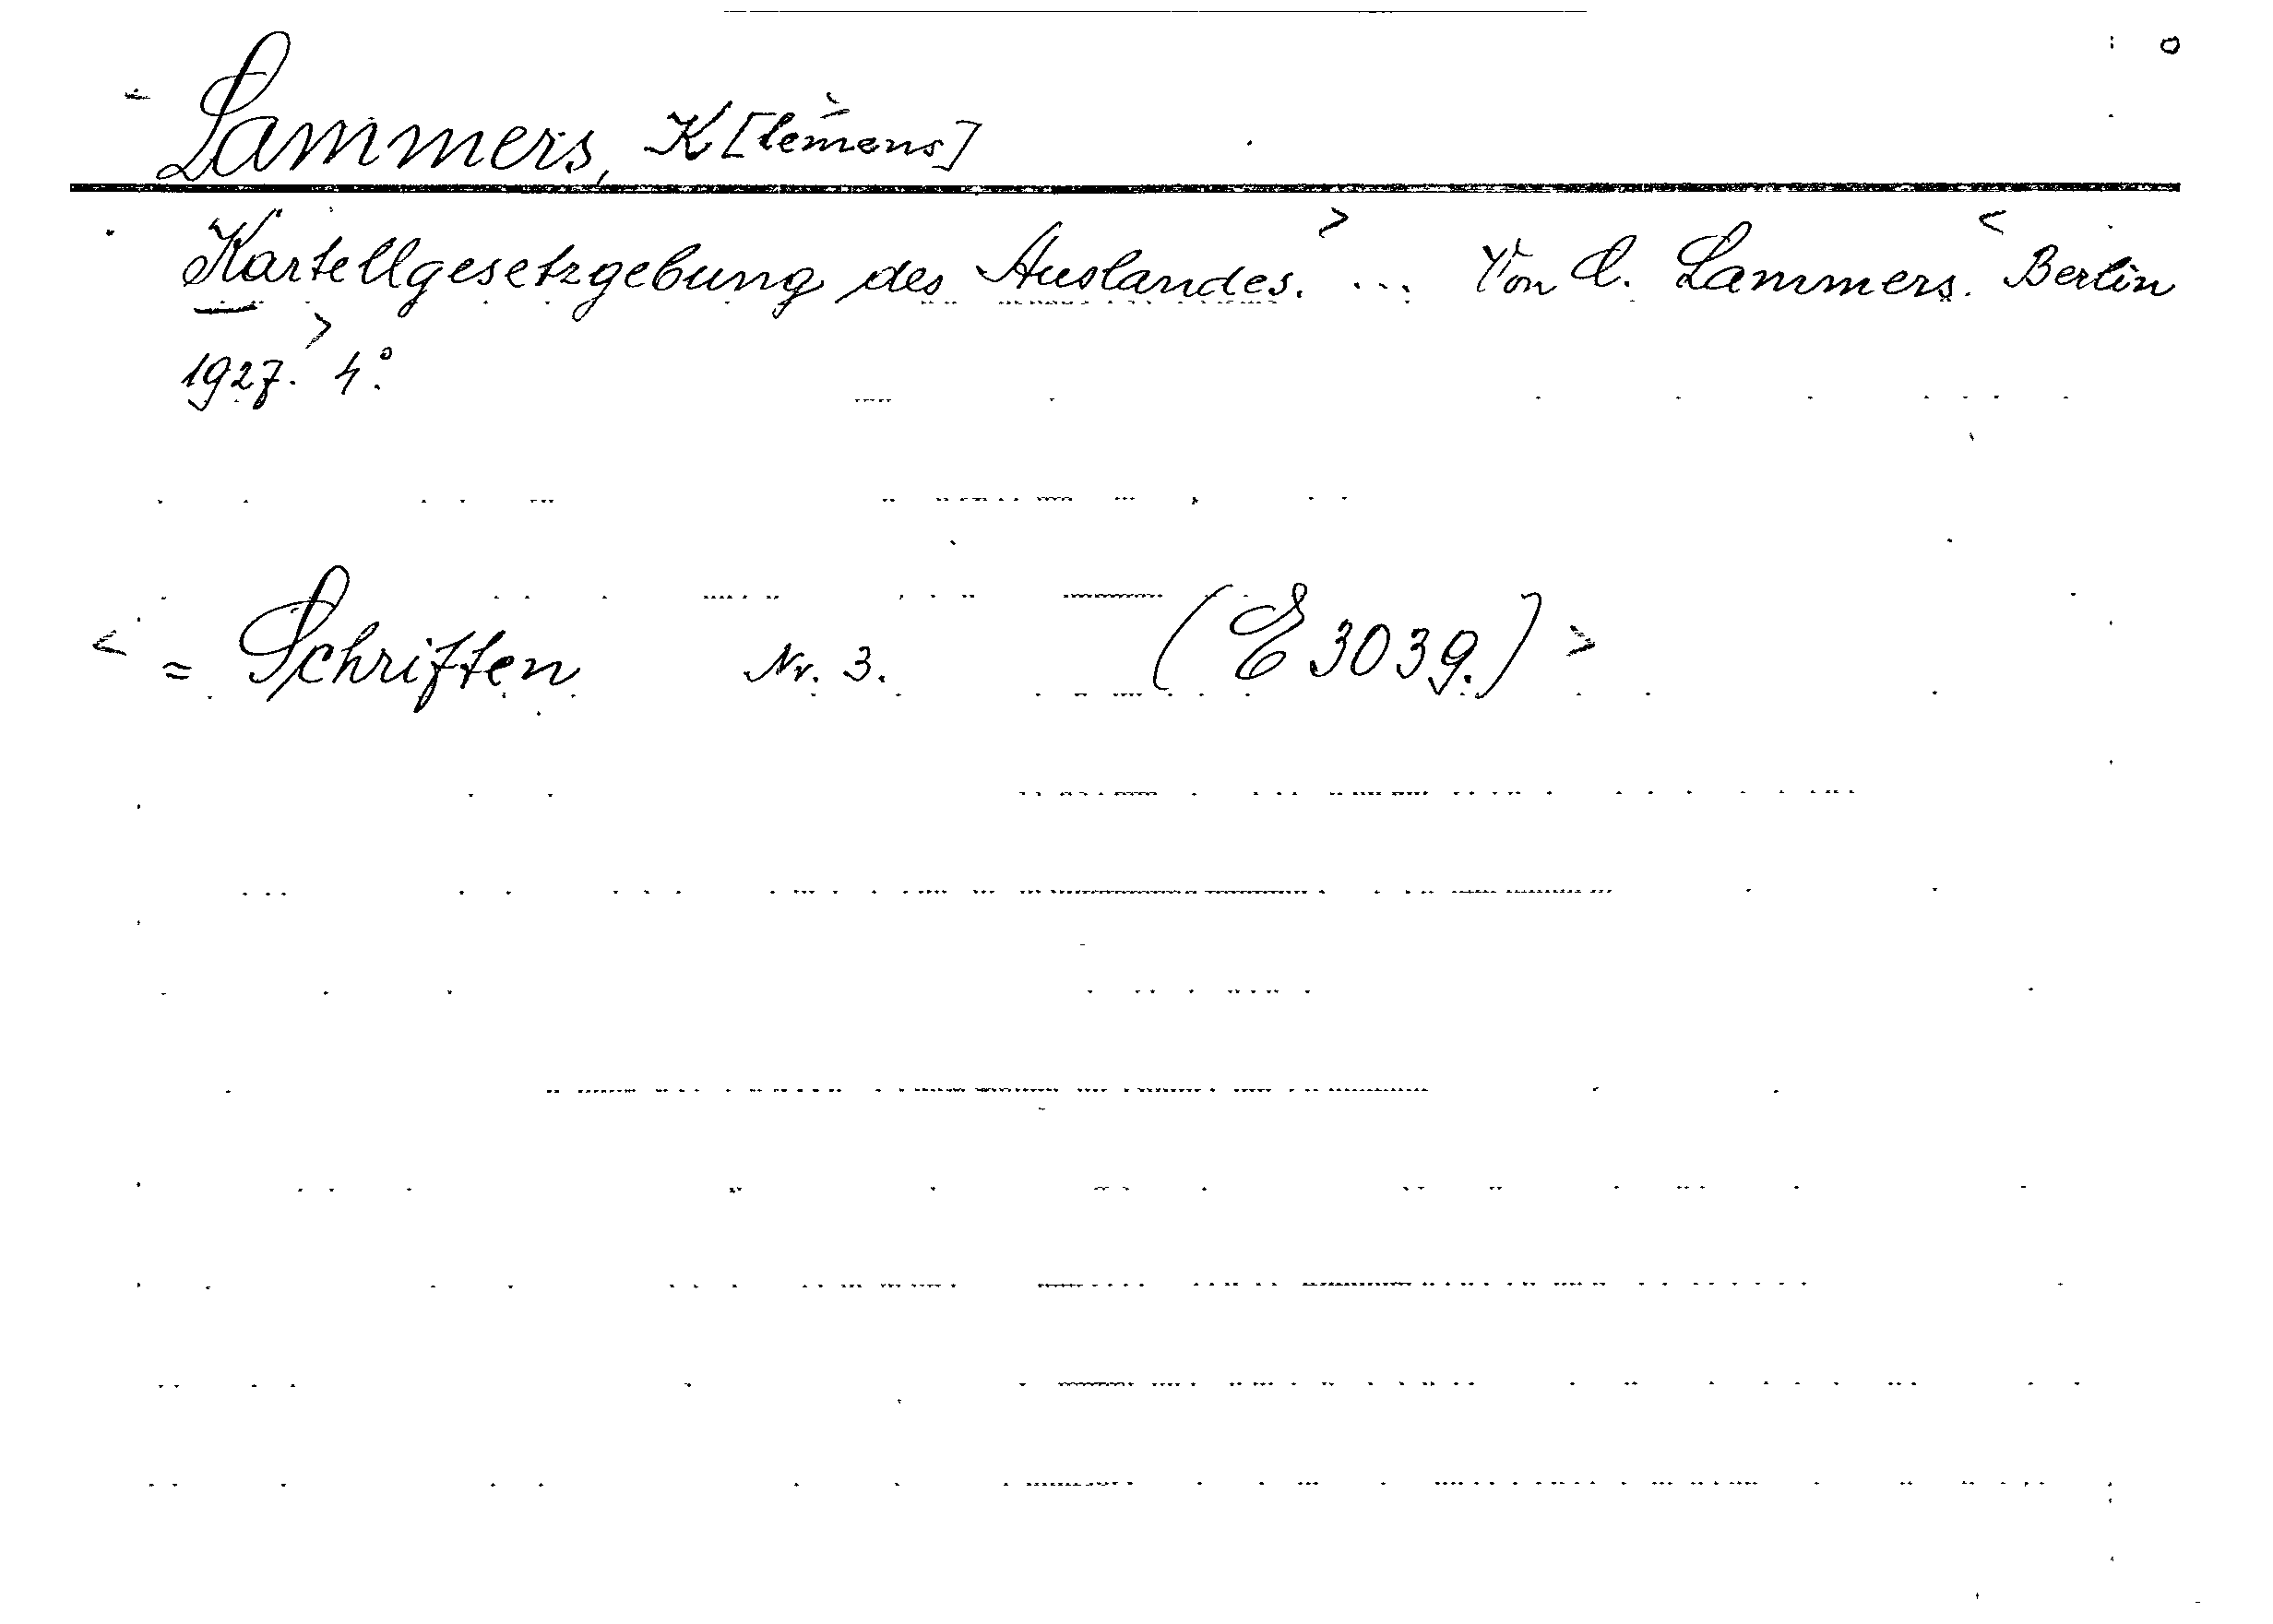 Lammers, K[lemens]
Kartellgesetzgebung des Auslandes. > ... Von C. Lammers. < Berlin
1927. > 4°.
< = Schriften Nr. 3. (E 3039.) >